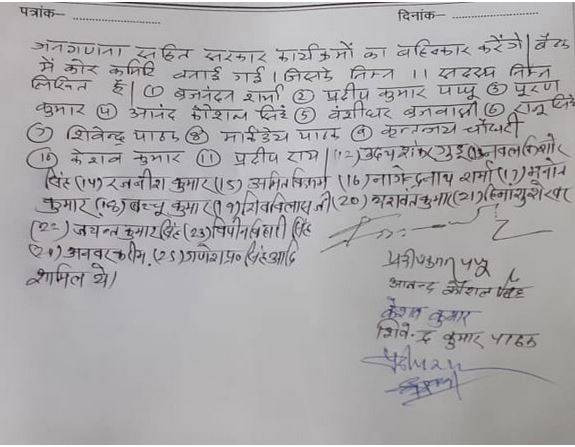 पत्रांक- दिनांक-
जनगणना सहित सरकार कार्यक्रमों का बहिष्कार करेंगे। बैठक
में कोर कमिटि बनाई गई। जिसके निम्न ।। सदस्य निम्न
लिखित है। (1) ब्रजनंदन शर्मा (2) प्रदीप कुमार पप्पू (3) पूरण
कुमार (4) आनंद कौशल सिंह (5) वंशीधर ब्रजवासी (6) रामू सिंह
(7) शिवेन्द्र पाठक (8) मार्कंडेय पाठक (9) कृतन्जय चौधरी
(10) केशव कुमार (11) प्रदीप राय। (12) उदय शंकर गुड्डू (13) नवल किशोर
सिंह (14) रजनीश कुमार (15) अमित विक्रम (16) नागेन्द्रनाथ शर्मा (17) मनोज
कुमार (18) बच्चू कुमार (19) शिवविलास जी (20) यशवंत कुमार (21) हिमांशु शेखर
(22) जयन्त कुमार सिंह (23) विपीन विहारी सिंह
(24) अनवर करीम. (25) गणेश प्र० सिंह आदि
शामिल थे।
प्रदीप कुमार पप्पू
आनन्द कौशल सिंह
केशव कुमार
शिवेन्द्र कुमार पाठक
प्रदीप राय